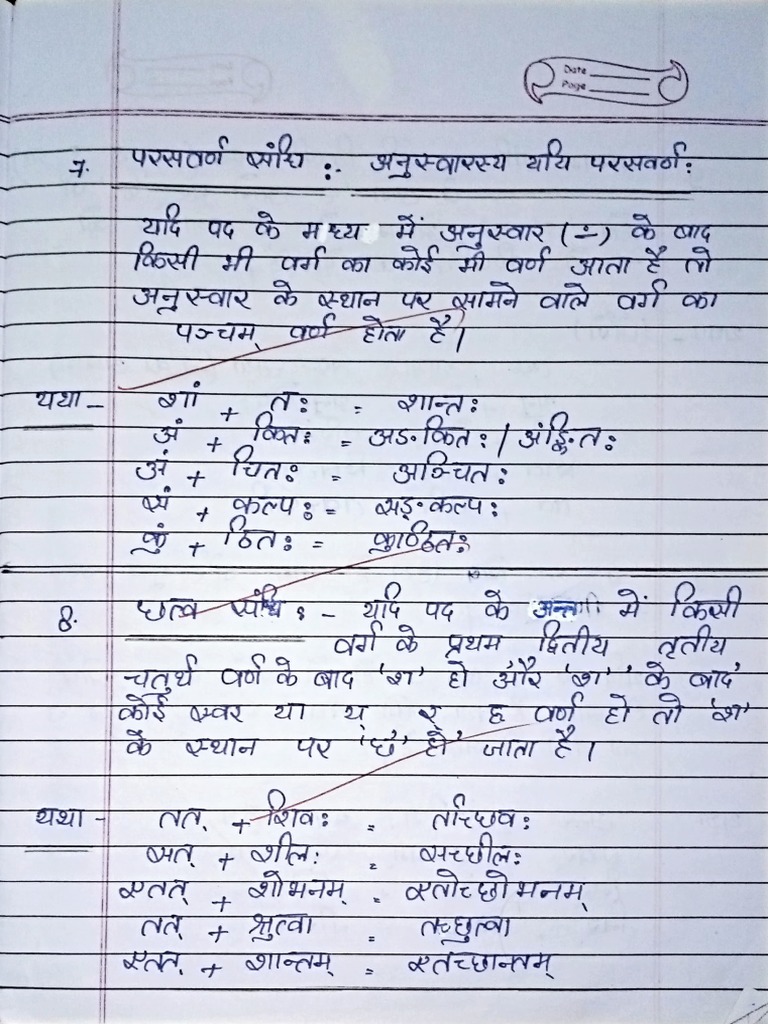 Date
Page
7. परसवर्ण संधि :- अनुस्वारस्य ययि परसवर्ण:
यदि पद के मध्य में अनुस्वार (ं) के बाद
किसी भी वर्ग का कोई भी वर्ण आता है तो
अनुस्वार के स्थान पर सामने वाले वर्ग का
पञ्चम् वर्ण होता है।
यथा - शां + त: = शान्त:
अं + कित: = अङ्कित: / अंङ्कित:
अं + चित: = अञ्चित:
सं + कल्प: = सङ्कल्प:
कुं + ठित: = कुण्ठित:
8. छत्व संधि :- यदि पद के अन्त में किसी
वर्ग के प्रथम द्वितीय तृतीय
चतुर्थ वर्ण के बाद 'श' हो और 'श' के बाद
कोई स्वर या य् र ह वर्ण हो तो 'श'
के स्थान पर 'छ' हो जाता है।
यथा - तत् + शिव: = तच्छिव:
सत् + शील: = सच्छील:
एतत् + शोभनम् = एतोच्छोभनम्
तत् + श्रुत्वा = तच्छ्रुत्वा
एतत् + शान्तम् = एतच्छान्तम्